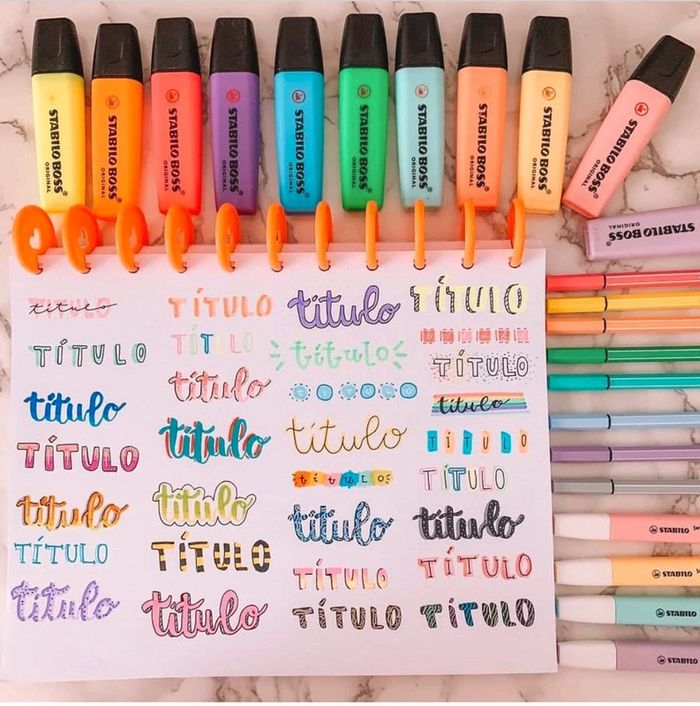 STABILO BOSS
ORIGINAL
STABILO BOSS
ORIGINAL
STABILO BOSS
ORIGINAL
STABILO BOSS
ORIGINAL
STABILO BOSS
ORIGINAL
STABILO BOSS
ORIGINAL
STABILO BOSS
ORIGINAL
STABILO BOSS
ORIGINAL
STABILO BOSS
ORIGINAL
STABILO BOSS
ORIGINAL
STABILO BOSS
ORIGINAL
título
TÍTULO
título
TÍTULO
título
TÍTULO
título
TÍTULO
TÍTULO
título
título
título
TÍTULO
título
título
título
título
título
título
TÍTULO
TÍTULO
TÍTULO
TÍTULO
título
TÍTULO
TÍTULO
título
TÍTULO
TÍTULO
STABILO
STABILO
STABILO
STABILO